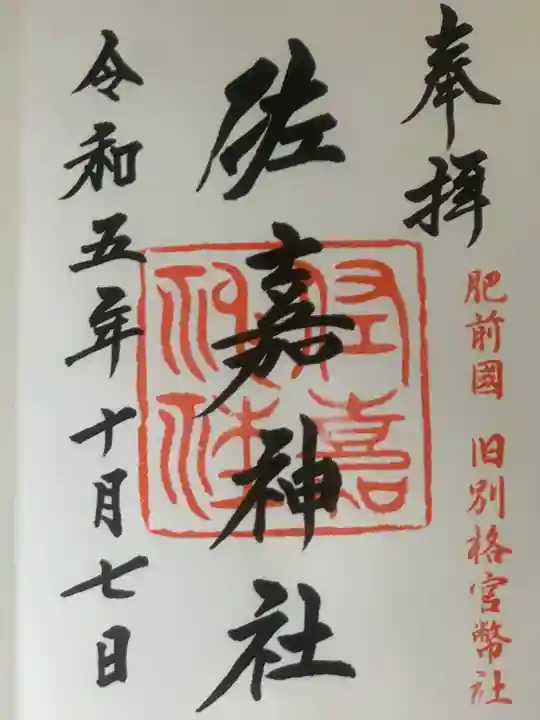 奉拝
肥前國 旧別格官幣社
佐嘉神社
佐嘉神社
令和五年十月七日